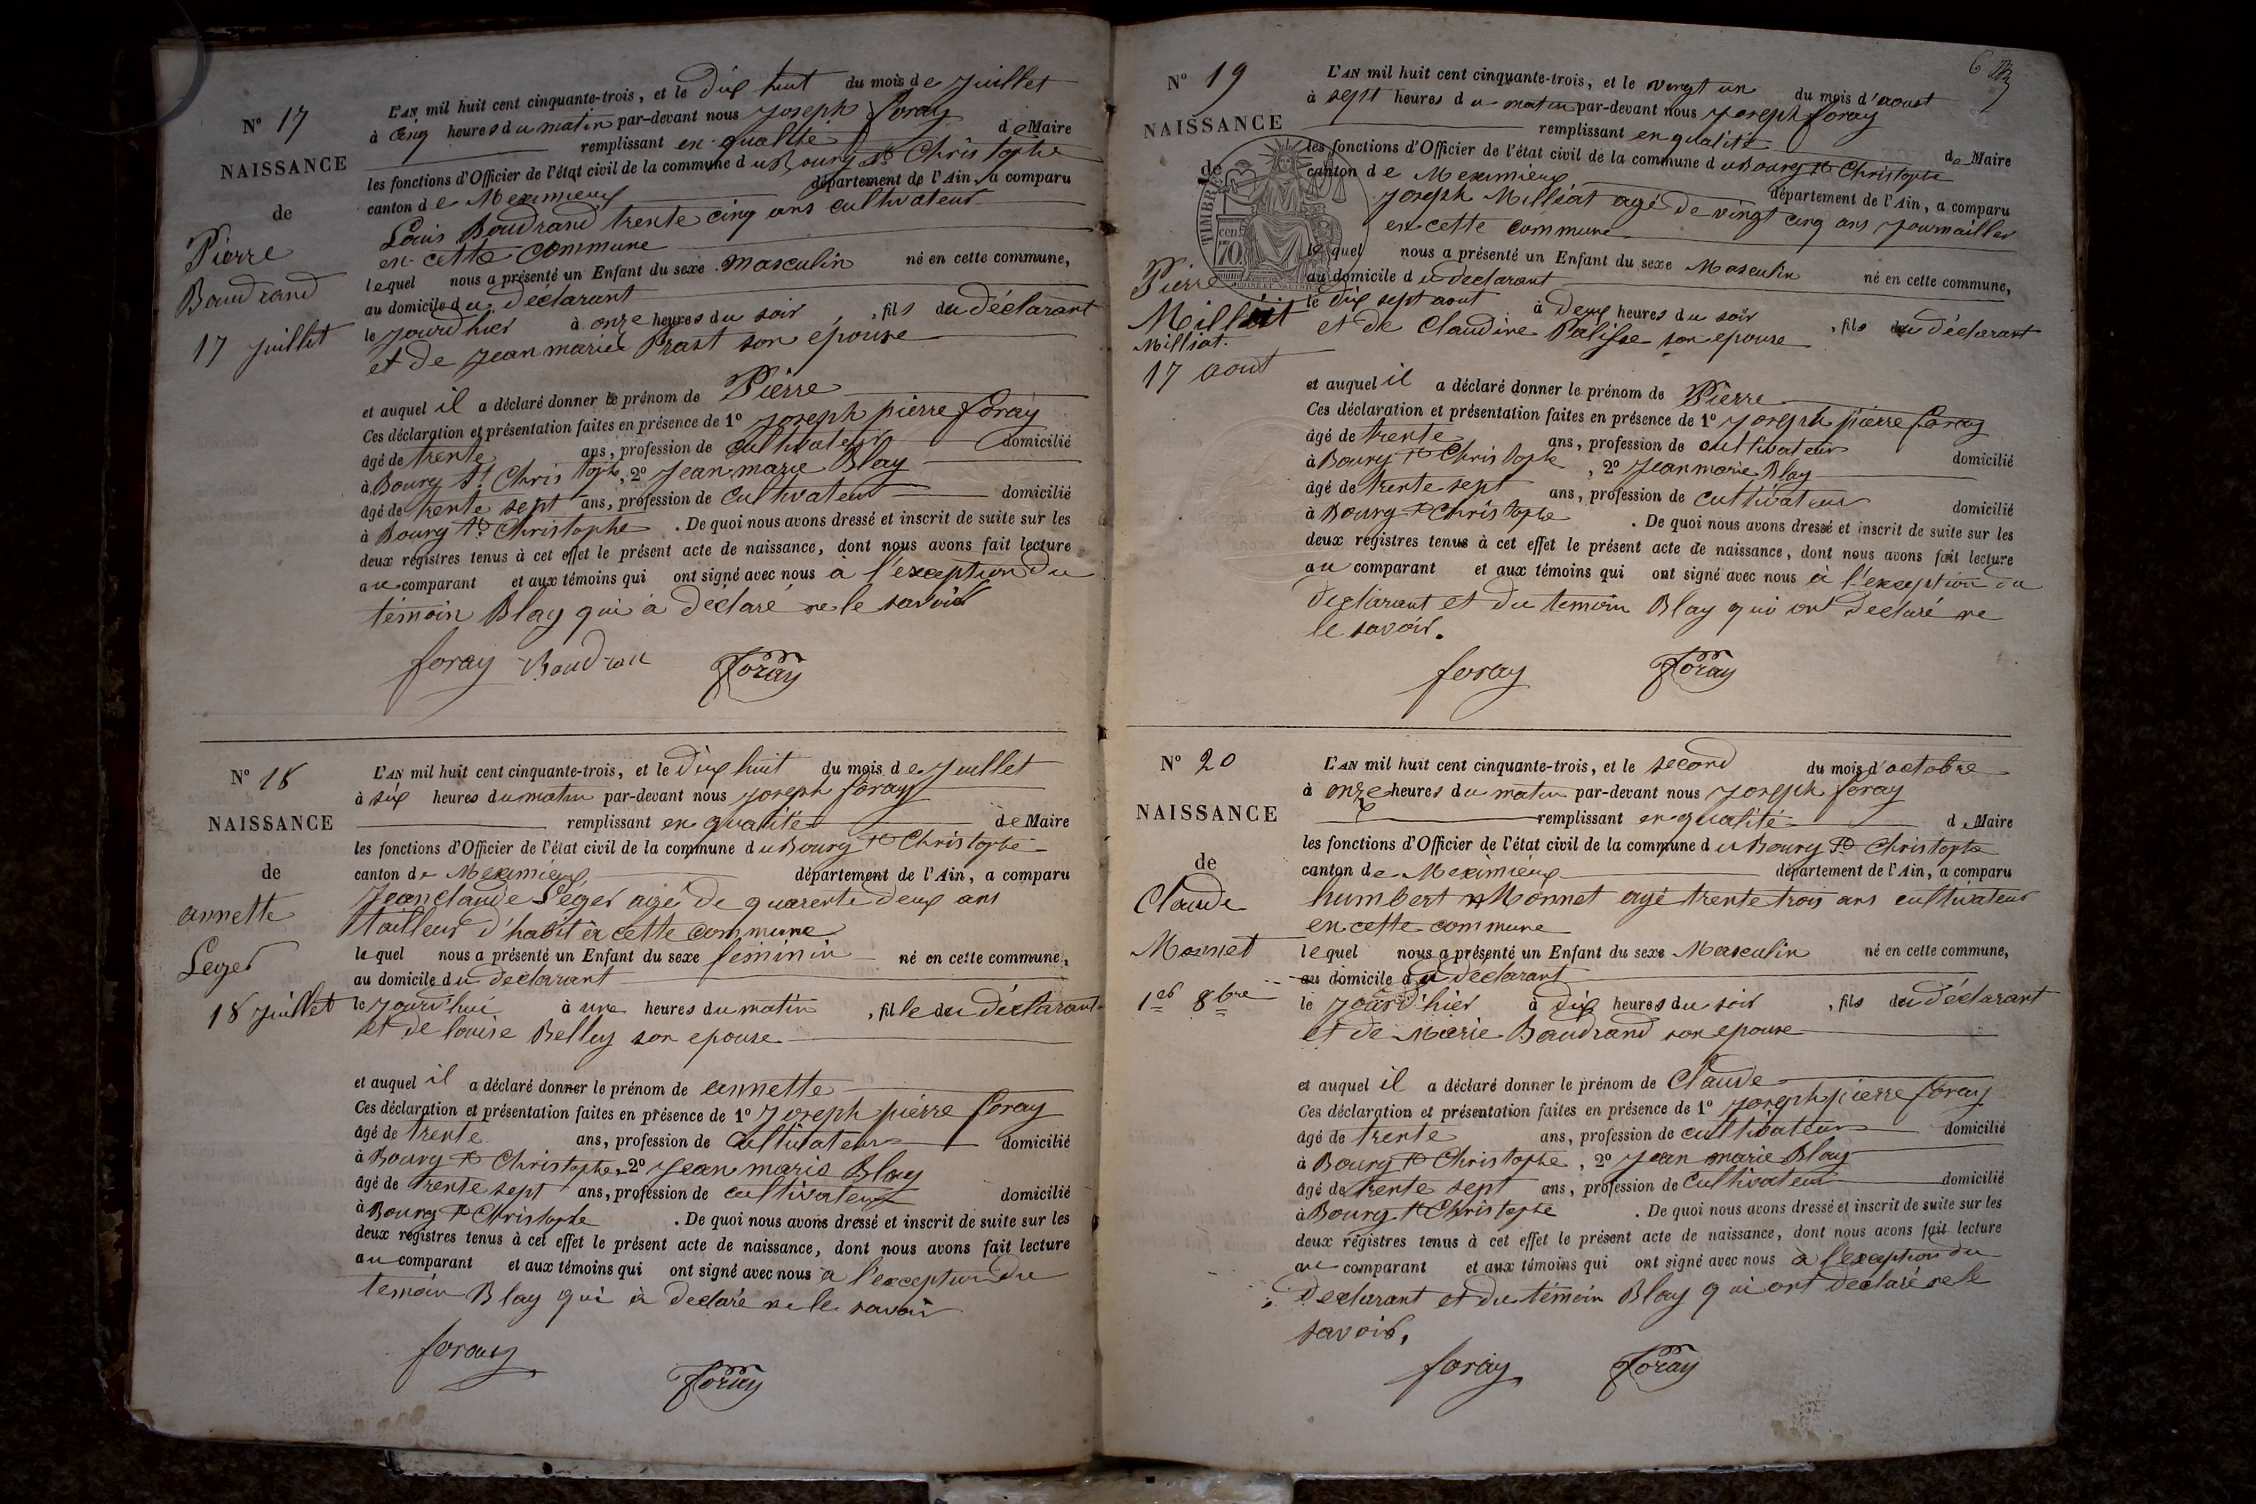 N° 17
NAISSANCE
de
Pierre
Baudrand
17 juillet
L'AN mil huit cent cinquante-trois, et le dix huit du mois de juillet
à cinq heures du matin par-devant nous joseph foray
remplissant en qualité de Maire
les fonctions d'Officier de l'état civil de la commune du Bourg St Christophe
canton de Meximieux département de l'Ain, a comparu
Louis Baudrand trente cinq ans cultivateur
en cette commune
lequel nous a présenté un Enfant du sexe masculin né en cette commune,
au domicile du déclarant
le jourd'hier à onze heures du soir, fils du déclarant
et de jean marie Prast son épouse
et auquel il a déclaré donner le prénom de Pierre
Ces déclaration et présentation faites en présence de 1° joseph pierre foray
âgé de trente ans, profession de cultivateur domicilié
à Bourg St Christophe, 2° jean marie Blay
âgé de trente sept ans, profession de cultivateur domicilié
à Bourg St Christophe. De quoi nous avons dressé et inscrit de suite sur les
deux registres tenus à cet effet le présent acte de naissance, dont nous avons fait lecture
au comparant et aux témoins qui ont signé avec nous a l'exception du
témoin Blay qui a déclaré ne le savoir
foray Baudran foray
N° 18
NAISSANCE
de
annette
Leger
18 juillet
L'AN mil huit cent cinquante-trois, et le dix huit du mois de juillet
à six heures du matin par-devant nous joseph foray
remplissant en qualité de Maire
les fonctions d'Officier de l'état civil de la commune du Bourg St Christophe
canton de Meximieux département de l'Ain, a comparu
Jean claude Léger agé de quarente deux ans
tailleur d'habit en cette commune
lequel nous a présenté un Enfant du sexe féminin né en cette commune,
au domicile du declarant
le jourd'hui à une heures du matin, fille du déclarant
et de louise Belley son epouse
et auquel il a déclaré donner le prénom de annette
Ces déclaration et présentation faites en présence de 1° joseph pierre foray
âgé de trente ans, profession de cultivateur domicilié
à Bourg St Christophe, 2° jean marie Blay
âgé de trente sept ans, profession de cultivateur domicilié
à Bourg St Christophe. De quoi nous avons dressé et inscrit de suite sur les
deux registres tenus à cet effet le présent acte de naissance, dont nous avons fait lecture
au comparant et aux témoins qui ont signé avec nous a l'exception du
temoin Blay qui à declaré ne le savoir
foray foray
6
N° 19
NAISSANCE
de
TIMBRE
70
Pierre
Milliat
Milliat.
17 aout
L'AN mil huit cent cinquante-trois, et le vingt un du mois d'aoust
à sept heures du matin par-devant nous joseph foray
remplissant en qualité de Maire
les fonctions d'Officier de l'état civil de la commune du Bourg St Christophe
canton de Meximieux département de l'Ain, a comparu
joseph Milliat agé de vingt cinq ans journailler
en cette commune
lequel nous a présenté un Enfant du sexe Masculin né en cette commune,
au domicile du declarant
le dix sept aout à deux heures du soir, fils du déclarant
et de Claudine Palisse son epouse
et auquel il a déclaré donner le prénom de Pierre
Ces déclaration et présentation faites en présence de 1° joseph pierre foray
âgé de trente ans, profession de cultivateur domicilié
à Bourg St Christophe, 2° jean marie Blay
âgé de trente sept ans, profession de cultivateur domicilié
à Bourg St Christophe. De quoi nous avons dressé et inscrit de suite sur les
deux registres tenus à cet effet le présent acte de naissance, dont nous avons fait lecture
au comparant et aux témoins qui ont signé avec nous à l'exception du
declarant et du temoin Blay qui ont declaré ne
le savoir.
foray foray
N° 20
NAISSANCE
de
Claude
Monnet
1er 8bre
L'AN mil huit cent cinquante-trois, et le second du mois d'octobre
à onze heures du matin par-devant nous joseph foray
remplissant en qualité de Maire
les fonctions d'Officier de l'état civil de la commune du Bourg St Christophe
canton de Meximieux département de l'Ain, a comparu
humbert Monnet agé trente trois ans cultivateur
en cette commune
lequel nous a présenté un Enfant du sexe Masculin né en cette commune,
au domicile du déclarant
le jourd'hier à dix heures du soir, fils du déclarant
et de Marie Baudrand son epouse
et auquel il a déclaré donner le prénom de Claude
Ces déclaration et présentation faites en présence de 1° joseph pierre foray
âgé de trente ans, profession de cultivateur domicilié
à Bourg St Christophe, 2° jean marie Blay
âgé de trente sept ans, profession de cultivateur domicilié
à Bourg St Christophe. De quoi nous avons dressé et inscrit de suite sur les
deux registres tenus à cet effet le présent acte de naissance, dont nous avons fait lecture
au comparant et aux témoins qui ont signé avec nous à l'exception du
declarant et du témoin Blay qui ont declaré ne le
savoir,
foray foray